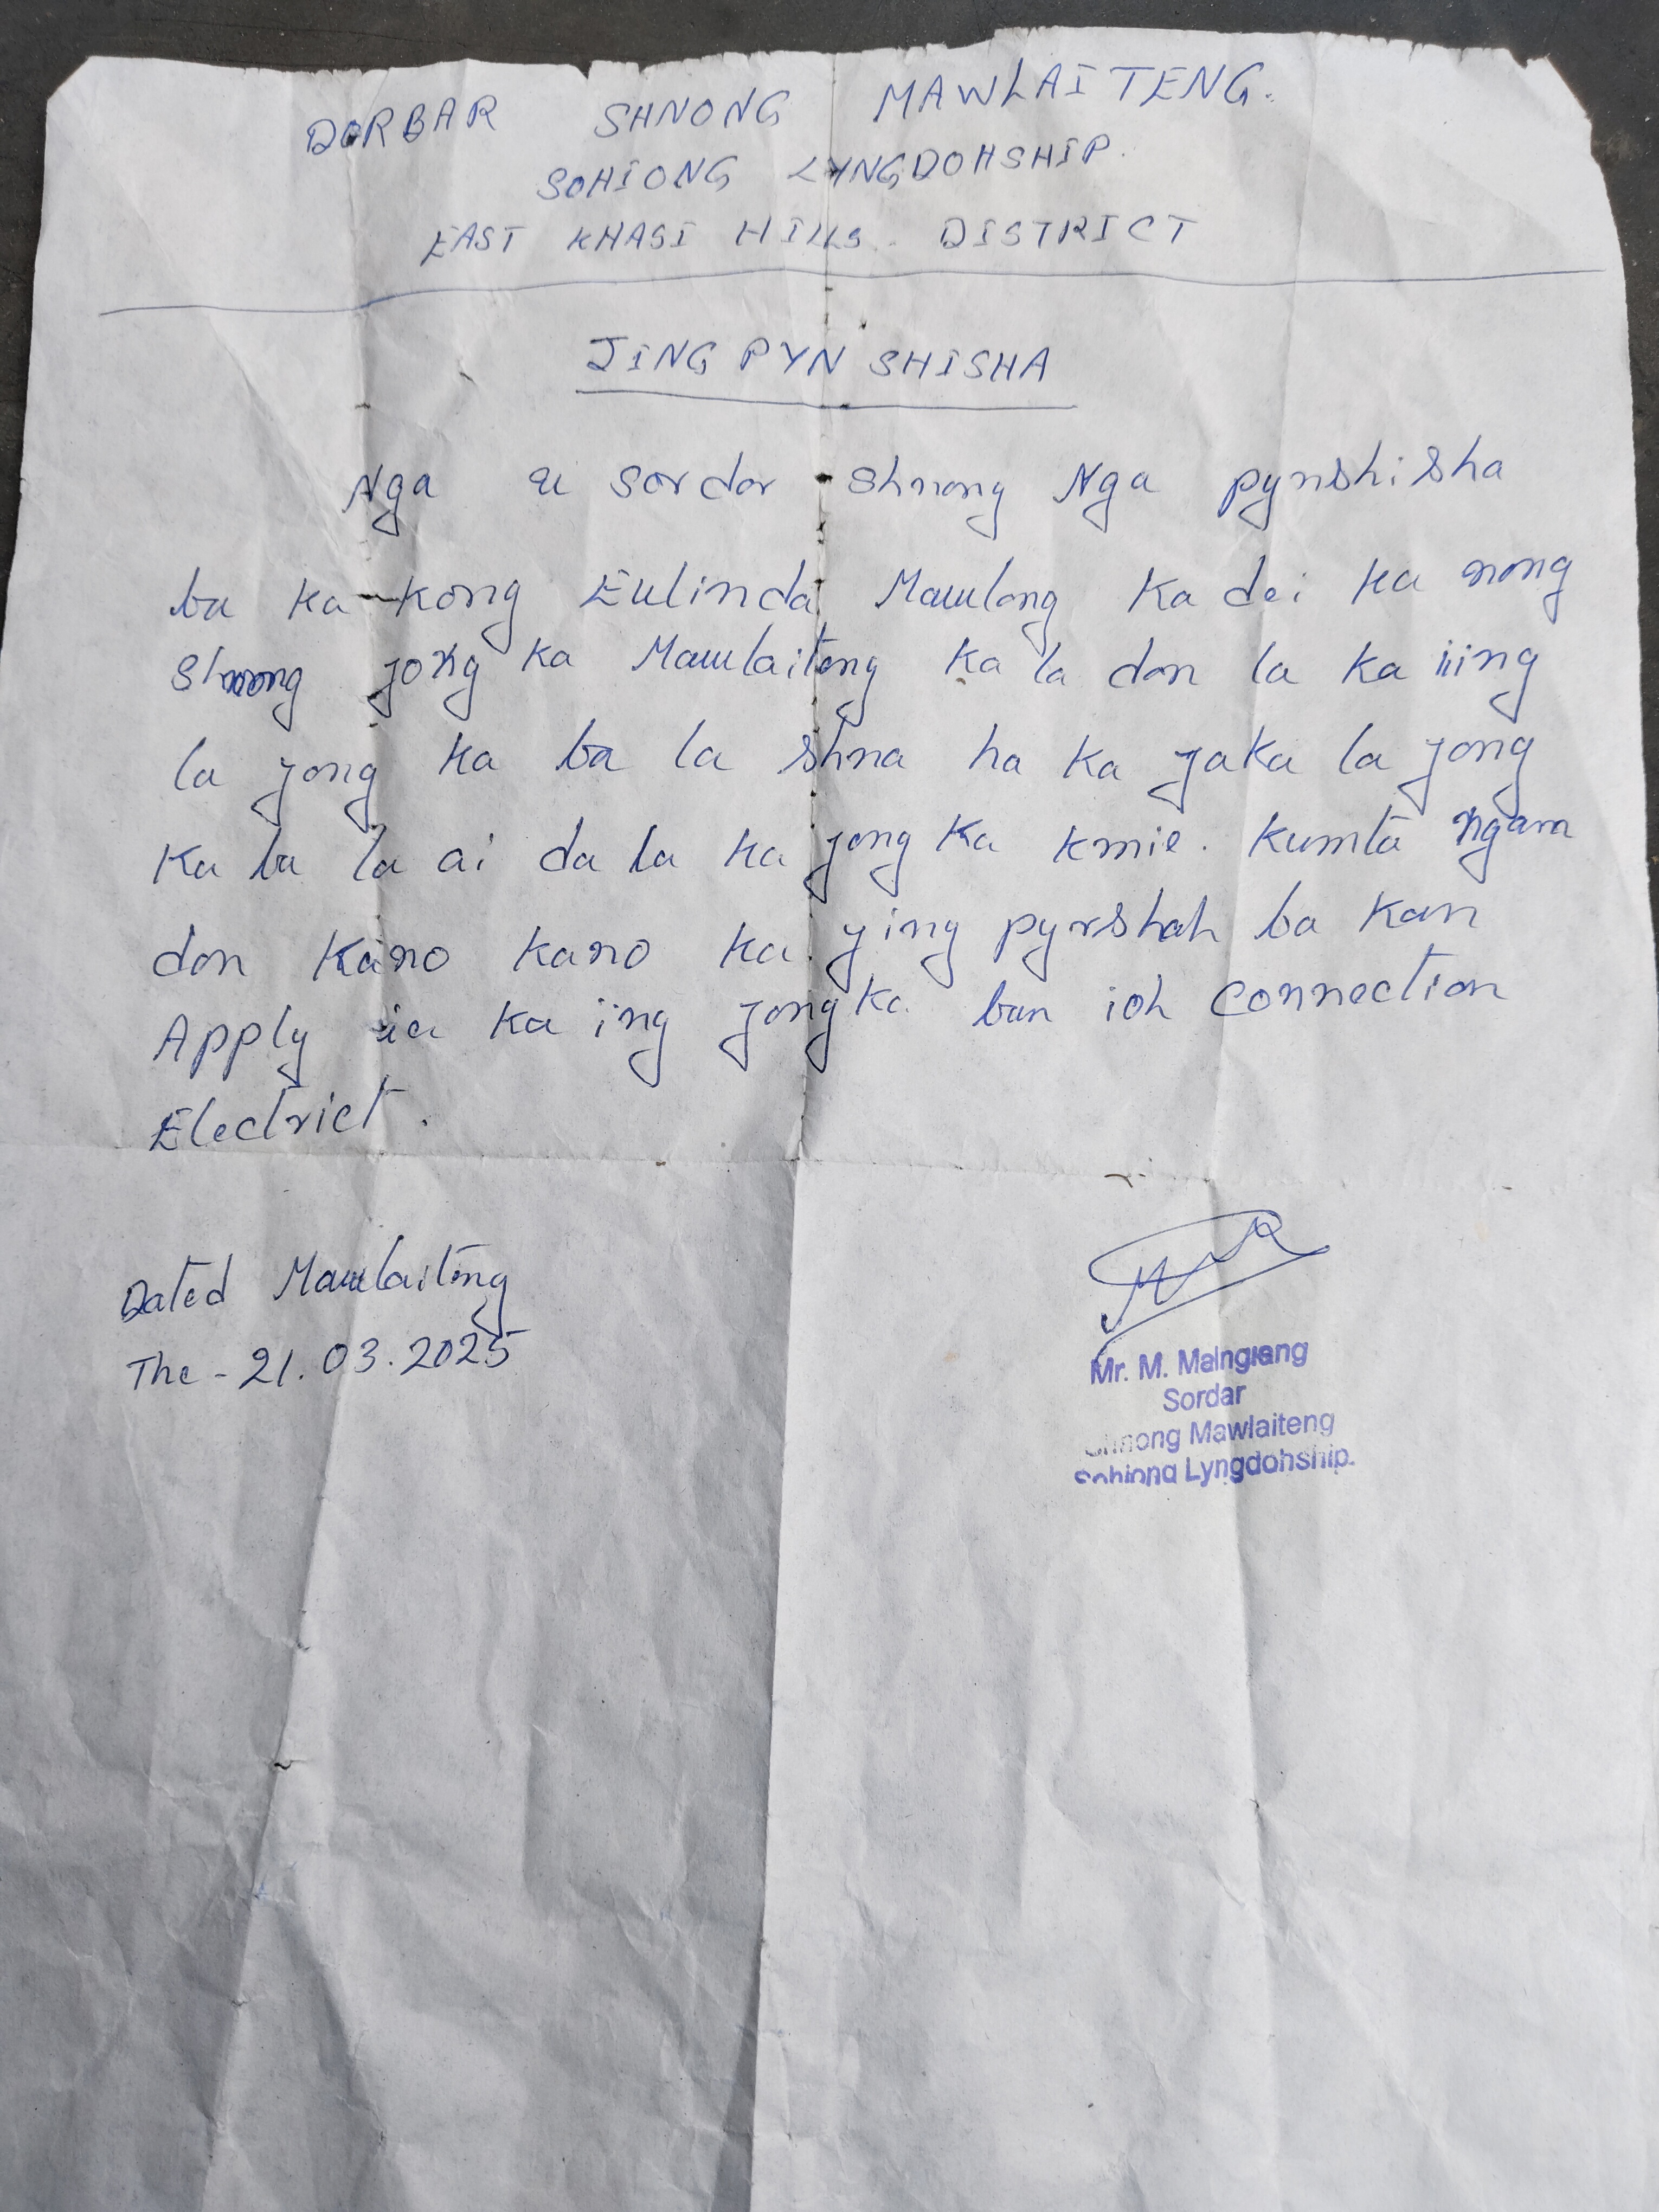 DORBAR SHNONG MAWLAITENG.
SOHIONG LYNGDOHSHIP.
EAST KHASI HILLS. DISTRICT
JING PYN SHISHA
Nga u sordar shnong Nga pynshisha
ba ka kong Eulinda Mawlong Ka dei ka nong
shnong jong ka Mawlaiteng ka la don la ka iing
la jong ka ba la shna ha ka jaka la jong
Ka ba la ai da la ka jong ka kmie. Kumta ngam
don kano kano ka jing pyrshah ba kan
Apply ia ka iing jong ka ban ioh connection
Electrict.
Dated Mawlaiteng
The - 21.03.2025
Mr. M. Malngiang
Sordar
Shnong Mawlaiteng
Sohiong Lyngdohship.